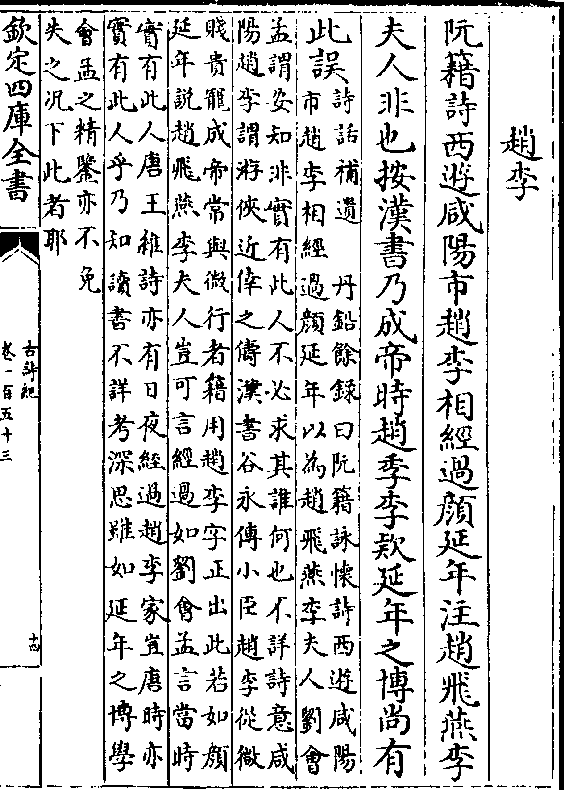 趙李
阮籍詩西遊咸陽市趙李相經過顔延年注趙飛燕李
夫人非也按漢書乃成帝時趙季李欵延年之博尚有
此誤
詩話補遺　丹鉛餘録曰阮籍詠懷詩西遊咸陽
市趙李相經過顔延年以為趙飛燕李夫人劉㑹
孟謂安知非實有此人不必求其誰何也不詳詩意咸
陽趙李謂游俠近倖之儔漢書谷永傳小臣趙李從微
賤貴寵成帝常與微行者籍用趙李字正出此若如顔
延年説趙飛燕李夫人豈可言經過如劉會孟言當時
實有此人唐王維詩亦有日夜經過趙李家豈唐時亦
實有此人乎乃知讀書不詳考深思雖如延年之博學
會孟之精鑒亦不免
失之况下此者耶
欽定四庫全書
古詩紀
卷一百五十三
十四